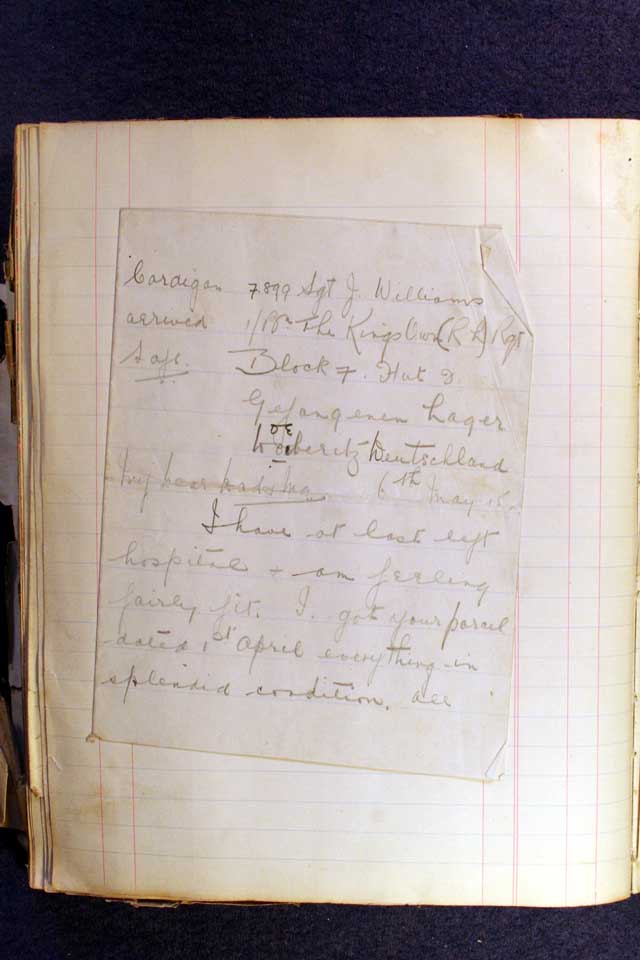 Cardigan 7899 Sgt J. Williams
arrived The Kings Own (R L) Rgt
Safe. Block 7. Hut 2.
Gefangenen Lager
Doeberitz Deutschland
My Dear 6th May 15.
I have at last left
hospital + am feeling
fairly fit. I got your parcel
dated 1st April everything in
splendid condition. all